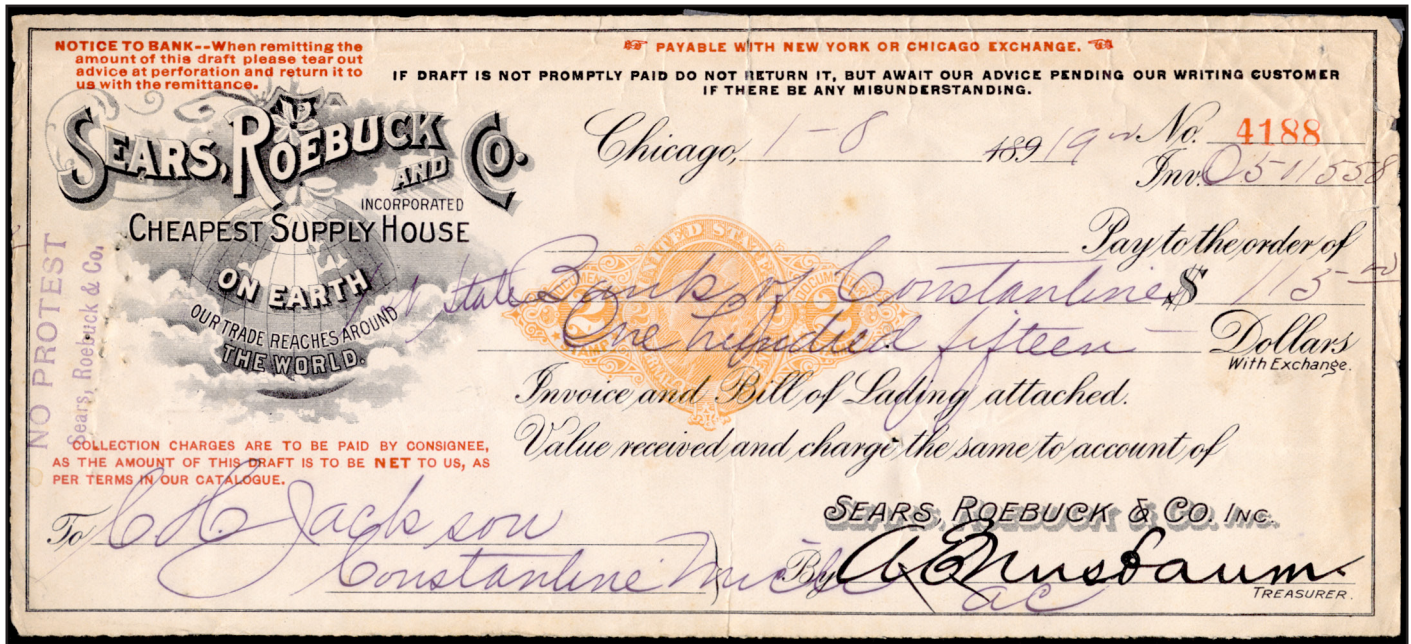 NOTICE TO BANK--When remitting the
amount of this draft please tear out
advice at perforation and return it to
us with the remittance.
PAYABLE WITH NEW YORK OR CHICAGO EXCHANGE.
IF DRAFT IS NOT PROMPTLY PAID DO NOT RETURN IT, BUT AWAIT OUR ADVICE PENDING OUR WRITING CUSTOMER
IF THERE BE ANY MISUNDERSTANDING.
SEARS, ROEBUCK AND CO.
INCORPORATED
CHEAPEST SUPPLY HOUSE
ON EARTH
OUR TRADE REACHES AROUND
THE WORLD.
NO PROTEST
Sears, Roebuck & Co.
Chicago, 1-8 189 19 No. 4188
Inv. 0511558
Pay to the order of
State Bank of Constantine $ 115
One hundred fifteen Dollars
With Exchange.
UNITED STATES
2 2
Invoice and Bill of Lading attached.
Value received and charge the same to account of
COLLECTION CHARGES ARE TO BE PAID BY CONSIGNEE,
AS THE AMOUNT OF THIS DRAFT IS TO BE NET TO US, AS
PER TERMS IN OUR CATALOGUE.
SEARS, ROEBUCK & CO. INC.
To C H Jackson
Constantine Mich
By A E Nusbaum.
ac
TREASURER.